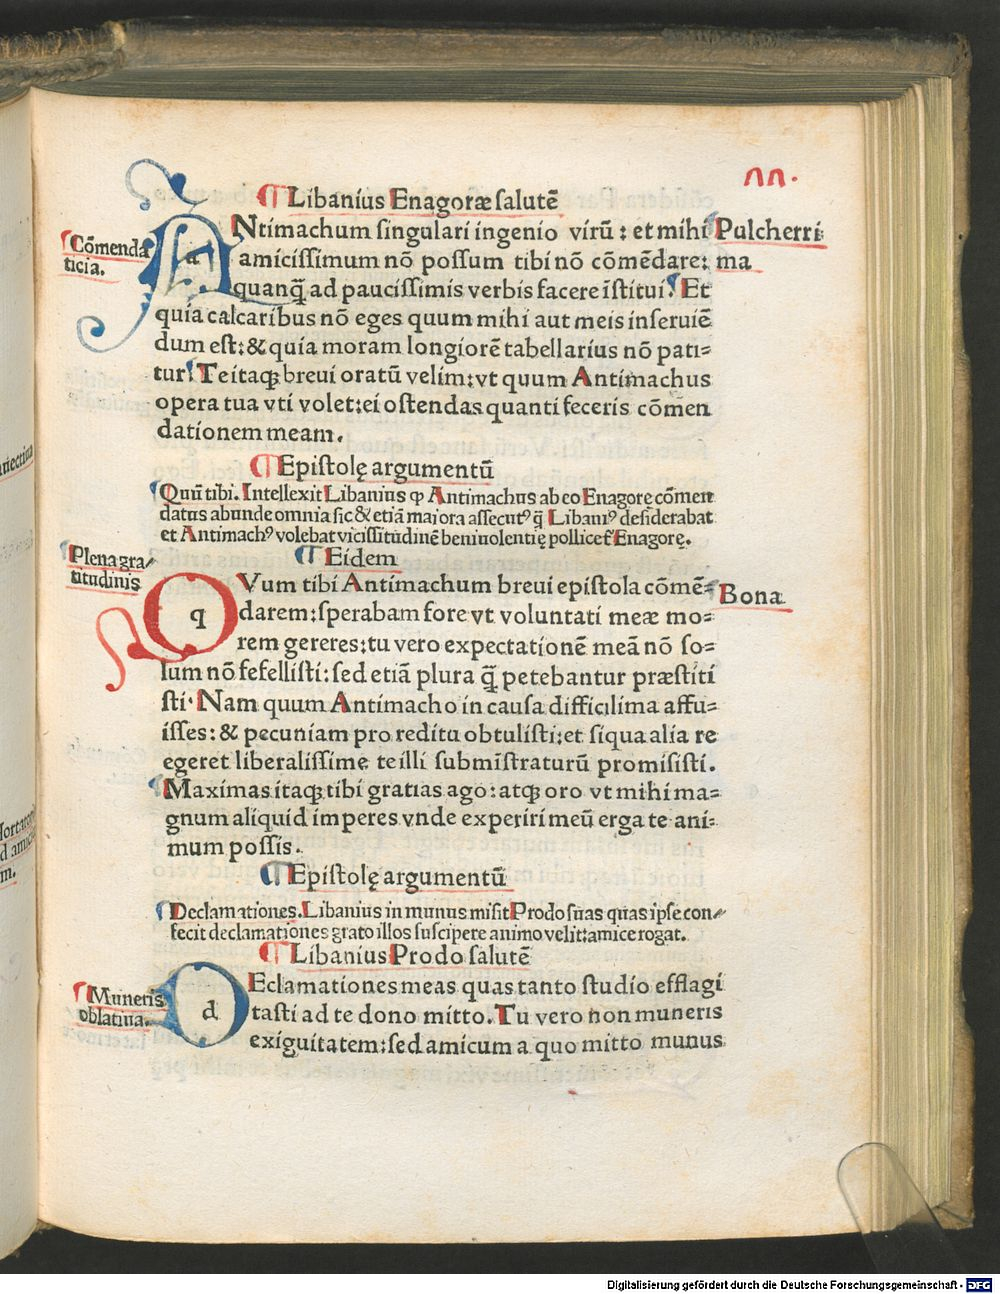 ¶Libanius Enagoræ salutē
ANtimachum singulari ingenio virū: et mihi
Pulcherri
Cōmenda
ticia.
amicissimum nō possum tibi nō cōmēdare:
ma
quanq̄ ad paucissimis verbis facere īstitui. Et
quia calcaribus nō eges quum mihi aut meis inseruiē
dum est: & quia moram longiorē tabellarius nō pati=
tur. Te itaqꝫ breui oratū velim: vt quum Antimachus
opera tua vti volet: ei ostendas quanti feceris cōmen
dationem meam.
¶Epistolę argumentū
Quū tibi. Intellexit Libanius ꝙ Antimachus ab eo Enagorę cōmen
datus abunde omnia sic & etiā maiora assecutꝰ q̄ Libaniꝰ desiderabat
et Antimachꝰ volebat vicissitudinē beniuolentię pollicet Enagorę.
¶Eidem
Plena gra⸗
titudinis
QVum tibi Antimachum breui epistola cōmē=
Bona
darem: sperabam fore vt voluntati meæ mo=
rem gereres: tu vero expectationē meā nō so=
lum nō fefellisti: sed etiā plura q̄ petebantur præstiti
sti. Nam quum Antimacho in causa difficilima affu=
isses: & pecuniam pro reditu obtulisti: et siqua alia re
egeret liberalissime te illi submīstraturū promisisti.
Maximas itaqꝫ tibi gratias ago: atqꝫ oro vt mihi ma=
gnum aliquid imperes vnde experiri meū erga te ani=
mum possis.
¶Epistolę argumentū
Declamationes. Libanius in munus misit Prodo suas quas ipse con⸗
fecit declamationes grato illos suscipere animo velit: amice rogat.
¶Libanius Prodo salutē
Muneris
oblatiua.
DEclamationes meas quas tanto studio efflagi
tasti ad te dono mitto. Tu vero non muneris
exiguitatem: sed amicum a quo mitto munus
Digitalisierung gefördert durch die Deutsche Forschungsgemeinschaft - DFG